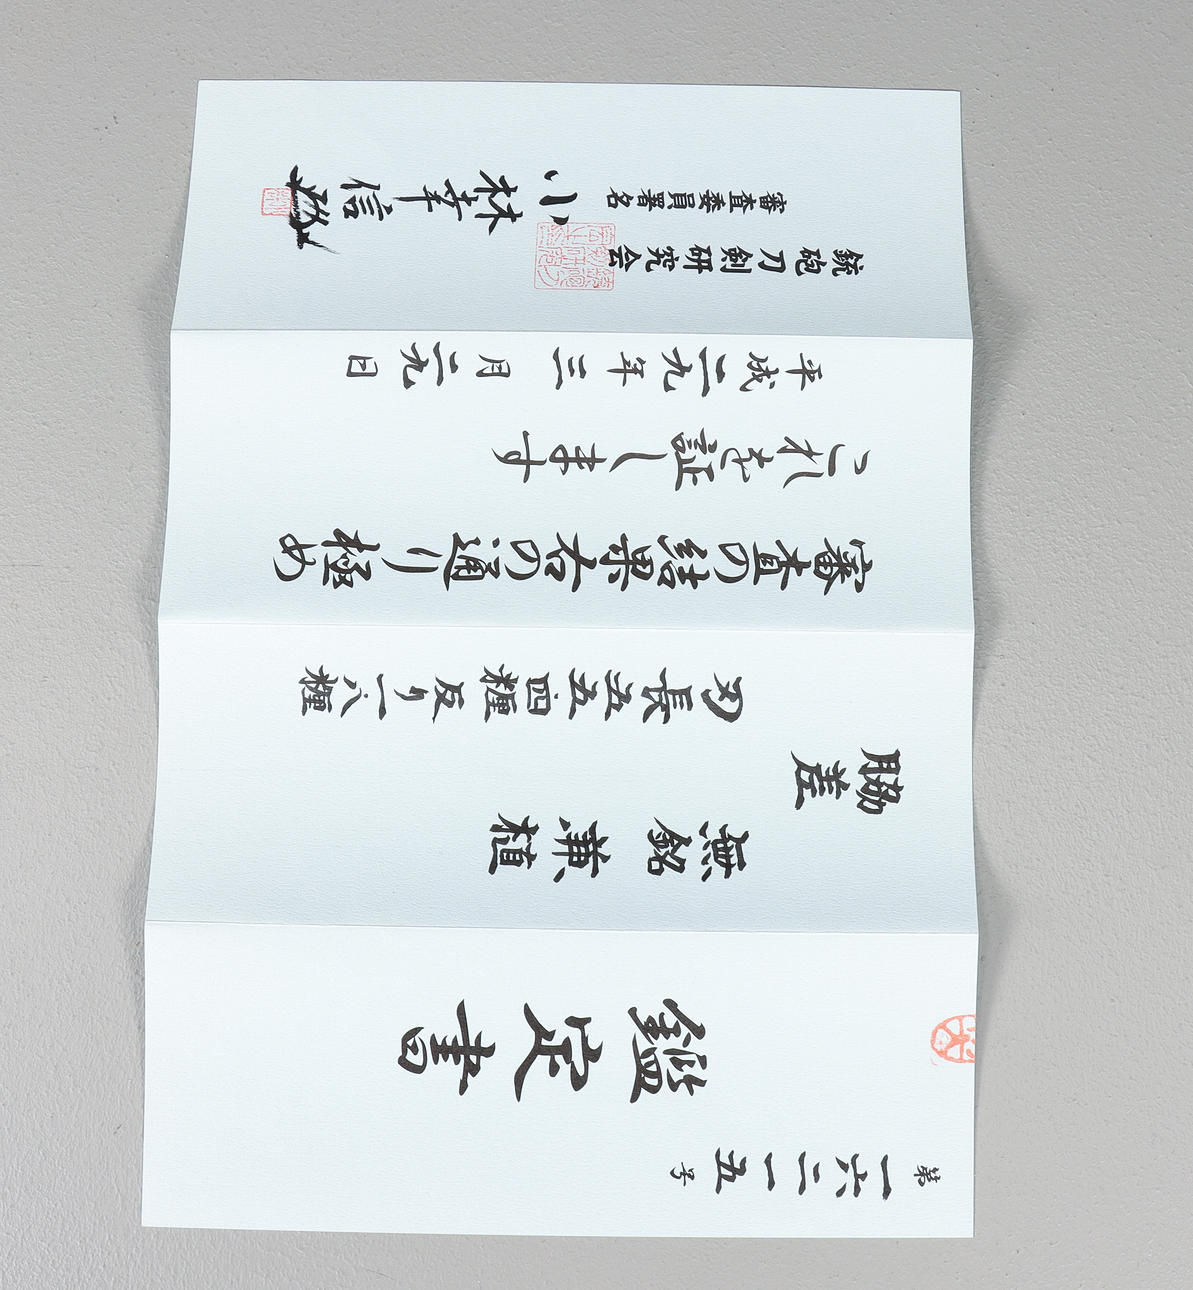 第一六二一五号
鑑定書
無銘 兼植
脇差
刃長五五四糎 反り一八糎
審査の結果右の通り極め
これを証します
平成二九年三月二九日
銃砲刀剣研究会
審査委員署名
小林幸信